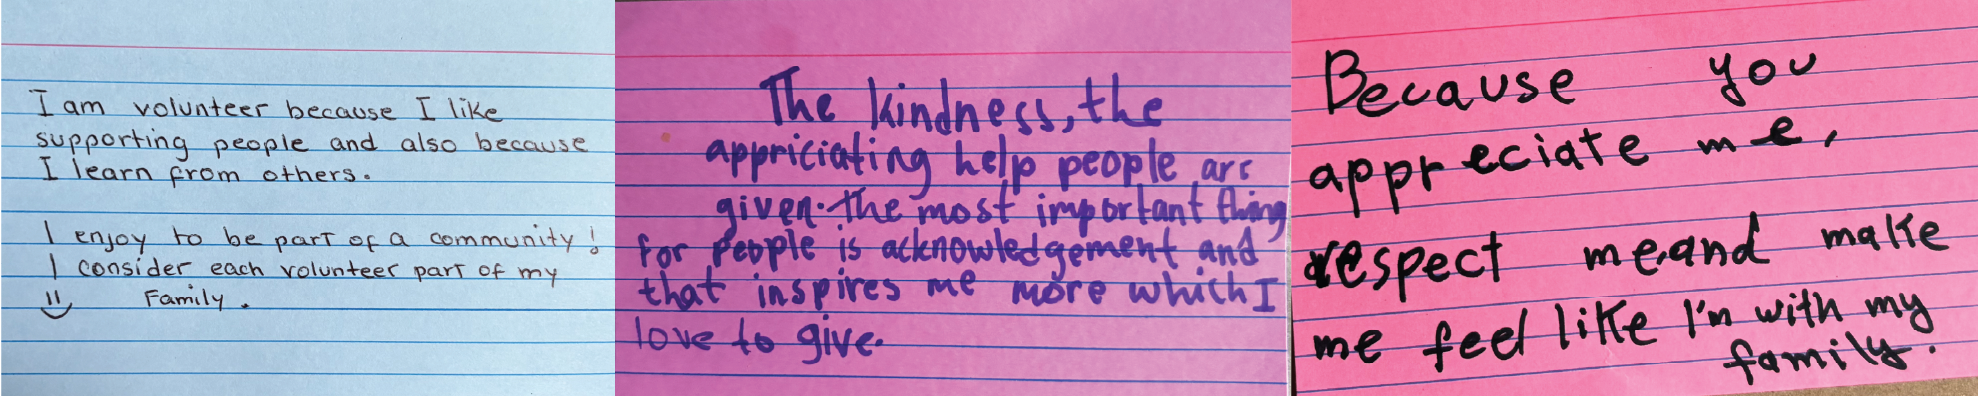 I am volunteer because I like
supporting people and also because
I learn from others.
I enjoy to be part of a community!
I consider each volunteer part of my
Family.
The kindness, the
appriciating help people are
given. The most important thing
for people is acknowledgement and
that inspires me more which I
love to give.
Because you
appreciate me,
respect me and make
me feel like I'm with my
family.